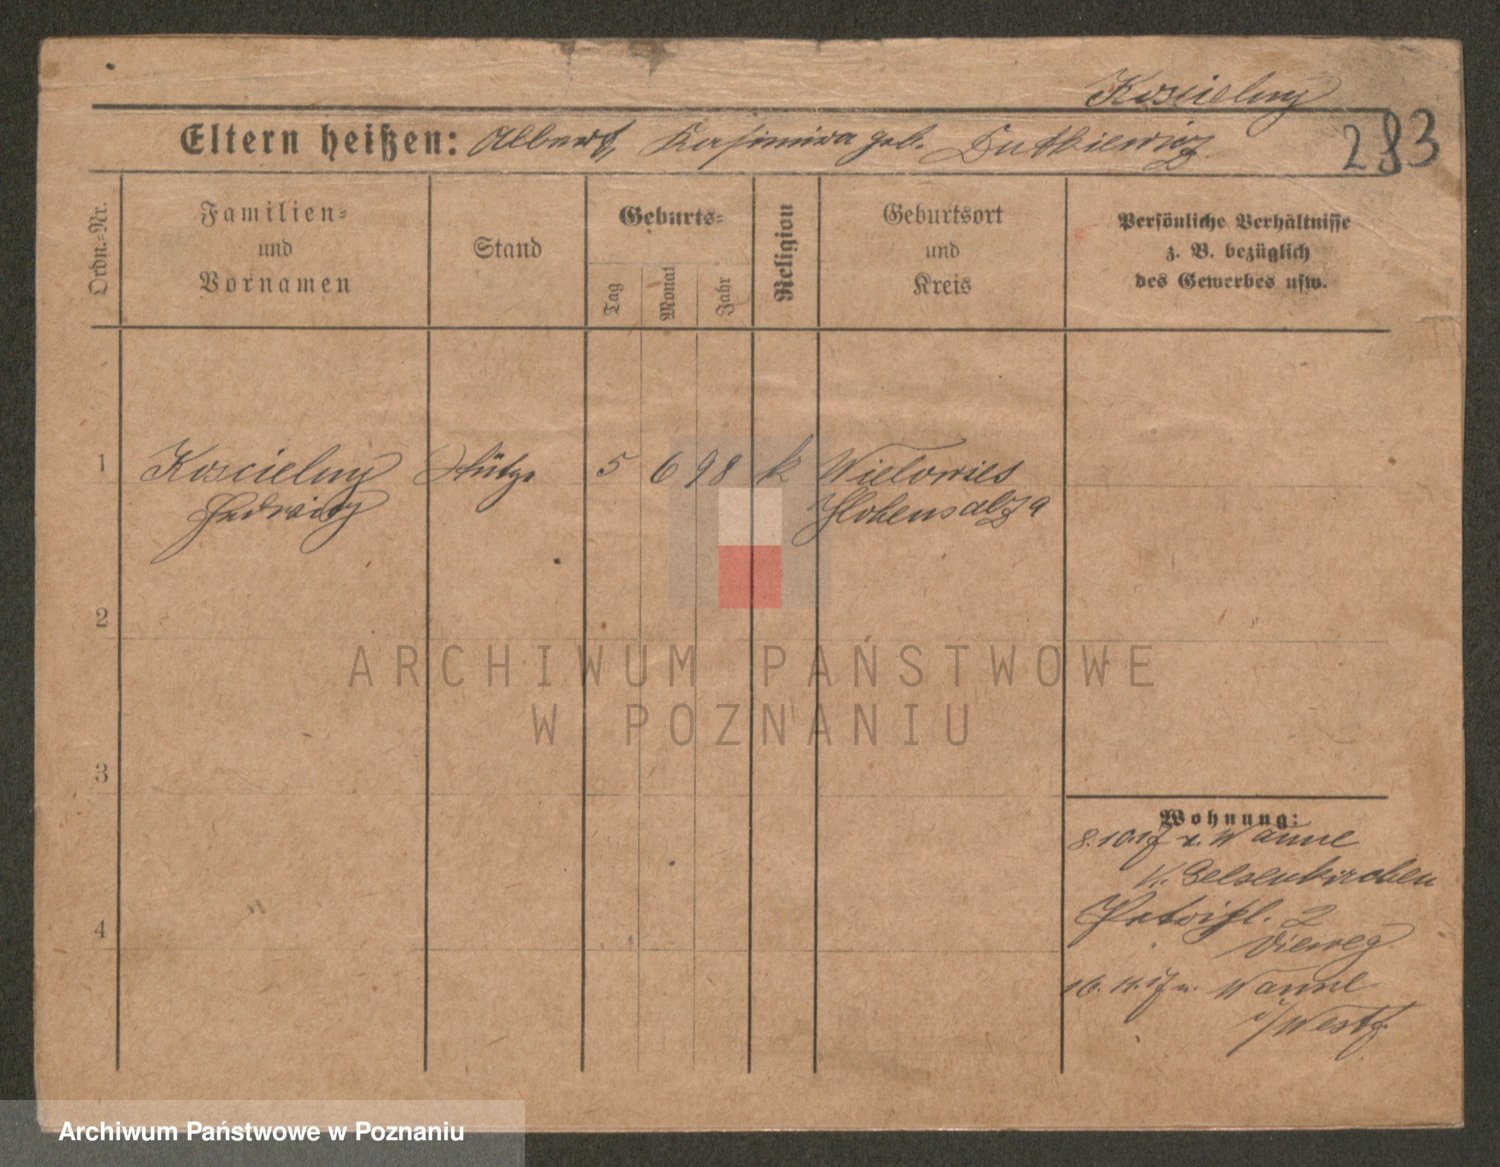 Koscielny
Eltern heißen: Albert, Kasimira geb. Dutkiewicz
283
Ordn.-Nr.
Familien- und Vornamen
Stand
Geburts-
Tag
Monat
Jahr
Religion
Geburtsort und Kreis
Persönliche Verhältnisse z. B. bezüglich des Gewerbes usw.
1 Koscielny Stütze 5 6 98 k Wielowies
Hedwig Hohensalza
2
3
4
Wohnung:
8.10.17 v. Wanne
K. Gelsenkirchen
2
16.11.17 n. Wanne
i/Westf.
ARCHIWUM PAŃSTWOWE
W POZNANIU
Archiwum Państwowe w Poznaniu